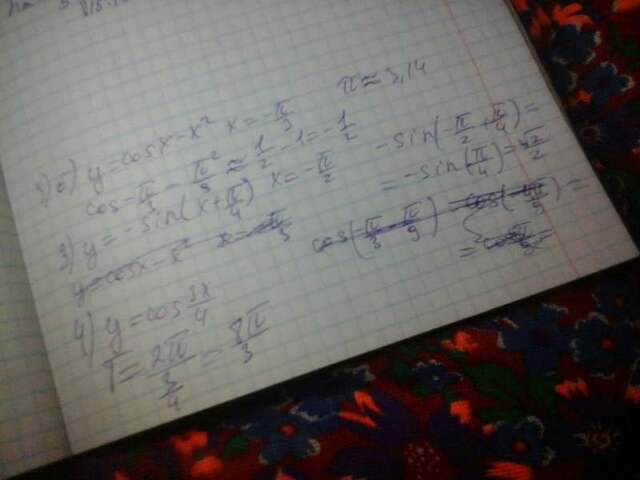 π ≈ 3,14
б) y = cosx - x² x = -π/3
cos -π/3 - π²/9 ≈ 1/2 - 1 = -1/2
3) y = -sin(x + π/4) x = -π/2
-sin(-π/2 + π/4) =
= -sin(π/4) = √2/2
y = cosx - x²
4) y = cos 3x/4
T = 2π/(3/4) = 8π/3